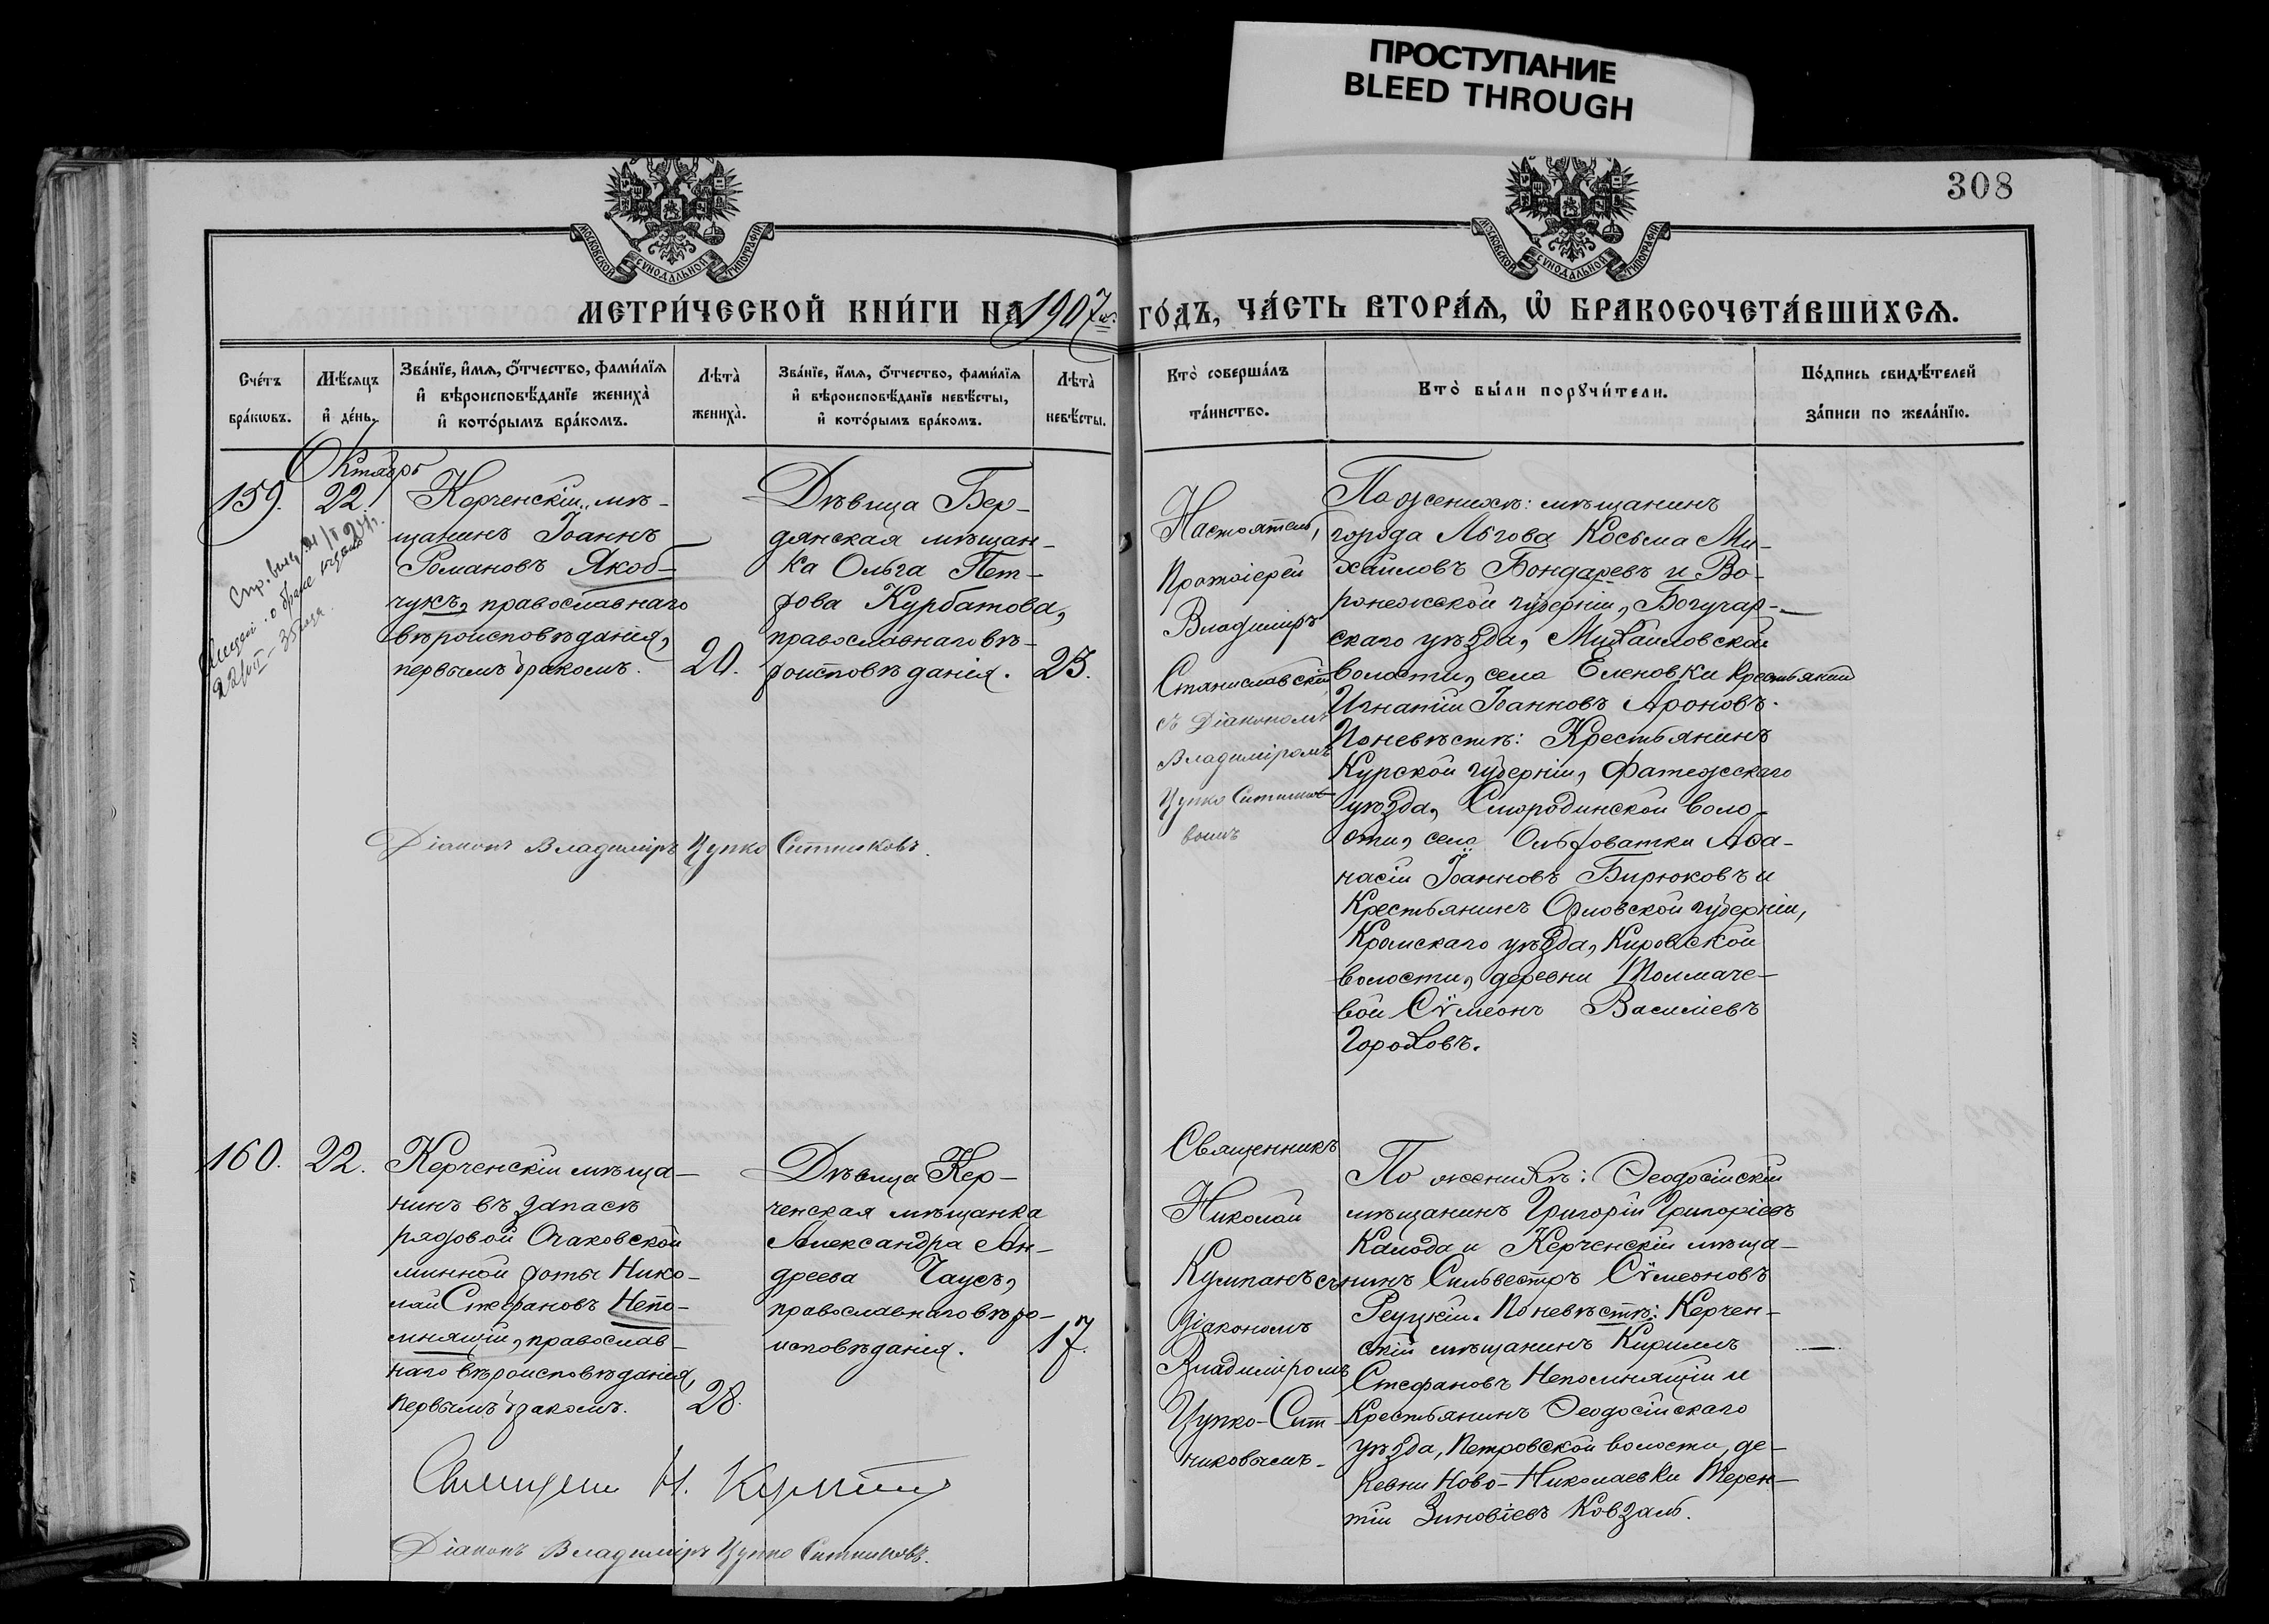 ПРОСТУПАНИЕ
BLEED THROUGH
308
МОСКОВСКОЙ СУНОДАЛЬНОЙ ТИПОГРАФІИ
МОСКОВСКОЙ СУНОДАЛЬНОЙ ТИПОГРАФІИ
МЕТРИ́ЧЕСКОЙ КНИ́ГИ НА 1907 го́дъ, ЧА́СТЬ ВТОРА́Ѧ, Ѡ҆ БРАКОСОЧЕТА́ВШИХСѦ.
Сче́тъ
бра́кѡвъ.
Мѣ́сѧцъ
и҆ де́нь.
Зва́нїе, и҆́мѧ, ѻ҆́тчество, фами́лїѧ
и҆ вѣроисповѣ́данїе жениха̀
и҆ кото́рымъ бра́комъ.
Лѣта̀
жениха̀.
Зва́нїе, и҆́мѧ, ѻ҆́тчество, фами́лїѧ
и҆ вѣроисповѣ́данїе невѣ́сты,
и҆ кото́рымъ бра́комъ.
Лѣта̀
невѣ́сты.
Кто̀ соверша́лъ
та́инство.
Кто̀ бы́ли порꙋчи́тели.
По́дпись свидѣ́телей
за́писи по жела́нїю.
Октябрь
159.
22.
Керченскій мѣ-
щанинъ Іоаннъ
Романовъ Якоб-
чукъ, православнаго
вѣроисповѣданія,
первымъ бракомъ.
20.
Дѣвица Бер-
дянская мѣщан-
ка Ольга Пет-
рова Курбатова,
православнаго вѣ-
роисповѣданія.
23.
Настоятель,
Протоіерей
Владиміръ
Станиславскій
съ Діакономъ
Владиміромъ
Цупко Ситнико-
вымъ
По женихѣ: мѣщанинъ
города Льгова Косьма Ми-
хайловъ Бондаревъ и Во-
ронежской губерніи, Богучар-
скаго уѣзда, Михайловской
волости, села Еленовки крестьянинъ
Игнатій Іоанновъ Ароновъ.
По невѣстѣ: Крестьянинъ
Курской губерніи, Фатежскаго
уѣзда, Смородинской воло-
сти, села Ольховатки Аѳа-
насій Іоанновъ Бирюковъ и
Крестьянинъ Орловской губерніи,
Кромскаго уѣзда, Кировской
волости, деревни Толмаче-
вой Сѵмеонъ Василіевъ
Гороховъ.
Діаконъ Владиміръ Цупко Ситниковъ.
160.
22.
Керченскій мѣща-
нинъ въ запасѣ
рядовой Очаковской
минной роты Нико-
лай Стефановъ Непо-
мнящій, православ-
наго вѣроисповѣданія,
первымъ бракомъ.
28.
Дѣвица Кер-
ченская мѣщанка
Александра Ан-
дреева Чаусъ,
православнаго вѣро-
исповѣданія.
17.
Священникъ
Николай
Кумпанъ съ
діакономъ
Владиміромъ
Цупко-Сит-
никовымъ.
По женихѣ: Ѳеодосійскій
мѣщанинъ Григорій Григоріевъ
Камода и Керченскій мѣща-
нинъ Сильвестръ Сѵмеоновъ
Реуцкій. По невѣстѣ: Керчен-
скій мѣщанинъ Кириллъ
Стефановъ Непомнящій и
Крестьянинъ Ѳеодосійскаго
уѣзда, Петровской волости, де-
ревни Ново-Николаевки Терен-
тій Зиновіевъ Ковзаль.
Священникъ Н. Кумпанъ
Діаконъ Владиміръ Цупко Ситниковъ.